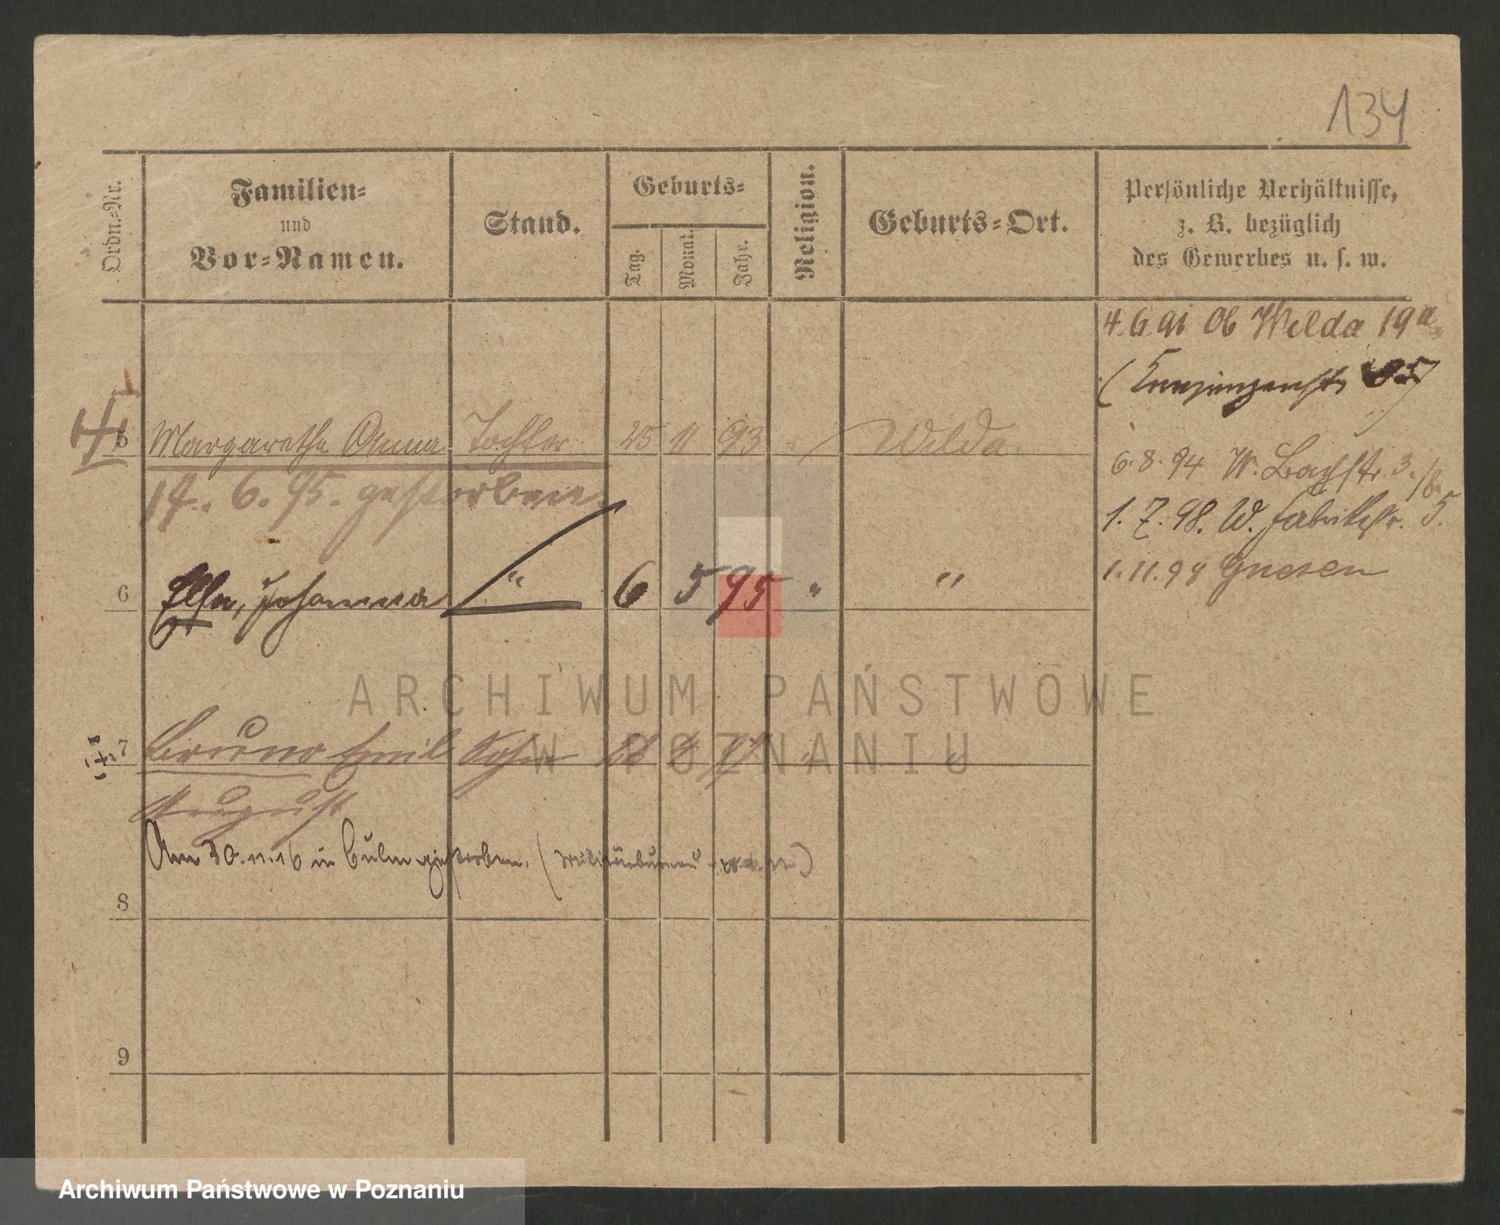 134
Ordn.-Nr.
Familien-
und
Vor-Namen.
Stand.
Geburts-
Tag.
Monat.
Jahr.
Religion.
Geburts-Ort.
Persönliche Verhältnisse,
z. B. bezüglich
des Gewerbes u. s. w.
4.6.91 Ob Wilda 19a
5 Margarethe Anna Tochter 25 11 93 " Wilda.
14. 6. 95. gestorben.
6.8.94 W. Bachstr. 3.
1.7.98. W. Fabrikstr. 5.
1.11.99 Gnesen
6 Else, Johanna " 6 5 95 " "
7 Bruno Emil Sohn
August
Am 30.11.16 in Culm gestorben. (Militärbureau
8
9
ARCHIWUM PAŃSTWOWE
W POZNANIU
Archiwum Państwowe w Poznaniu